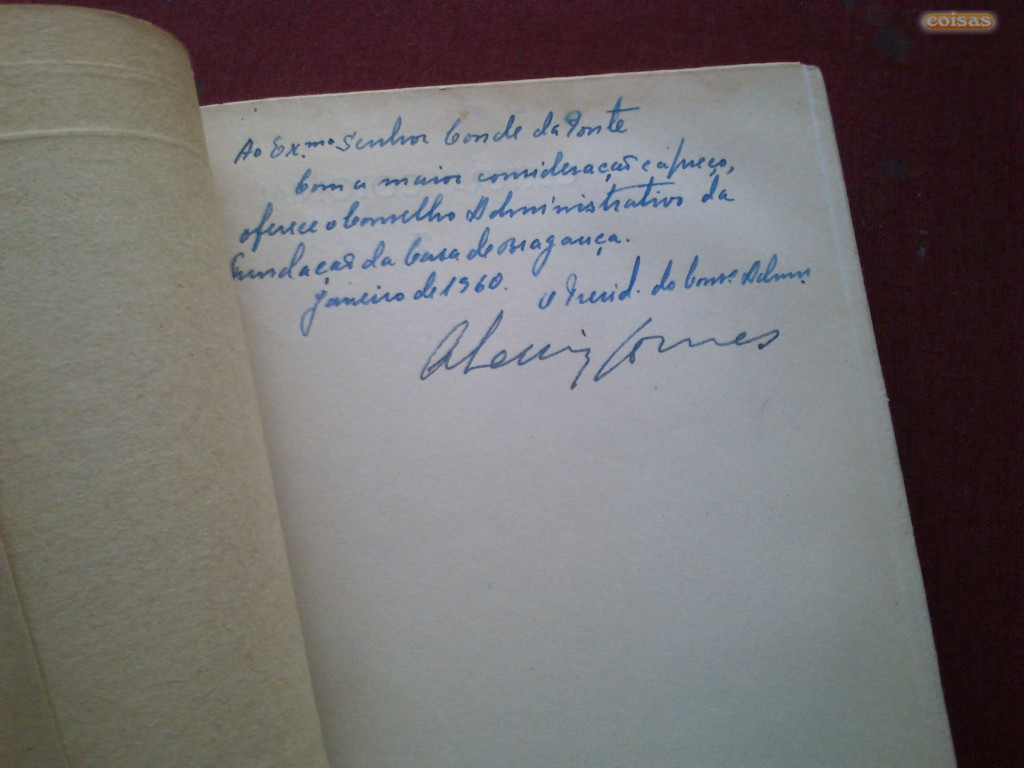 coisas
Ao Ex.mo Senhor Conde da Ponte
Com a maior consideração e apreço,
oferece o Conselho Administrativo da
Fundação da Casa de Bragança.
Janeiro de 1960. O Presid. do Cons. Admin.